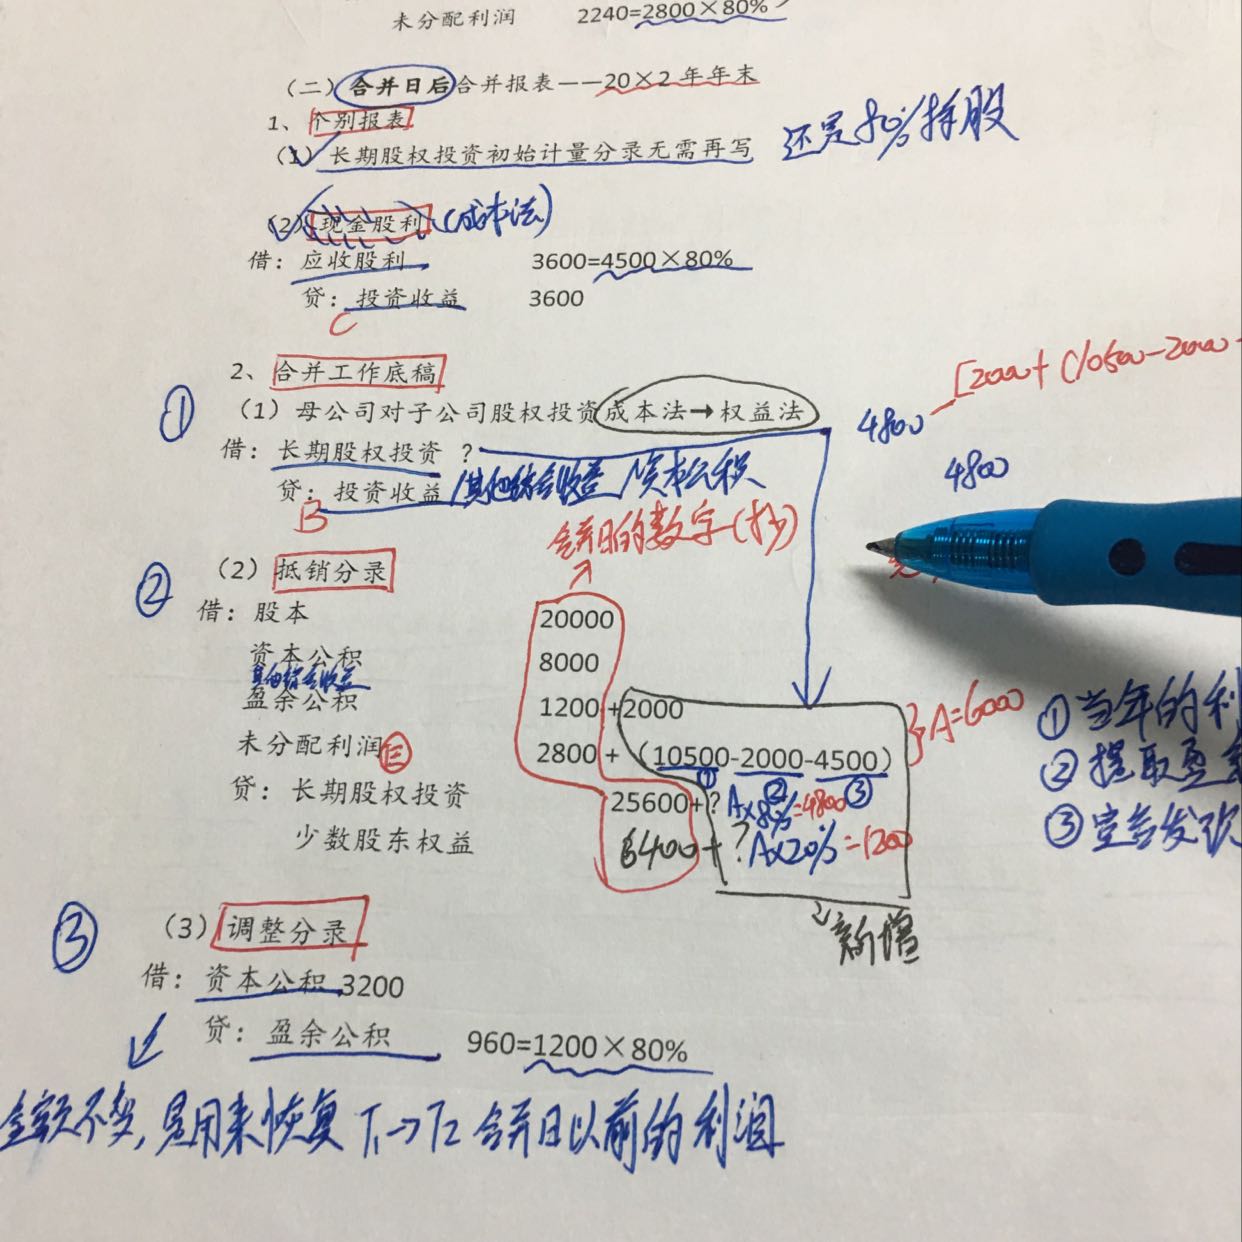 未分配利润 2240=2800×80%
（二）合并日后合并报表——20×2 年年末
1、个别报表
（1）长期股权投资初始计量分录无需再写 还是80%持股
（2）现金股利（成本法）
借：应收股利 3600=4500×80%
贷：投资收益 3600
C
2、合并工作底稿
[2000+(10500-2000-
① （1）母公司对子公司股权投资成本法→权益法 4800
借：长期股权投资 ？ 4800
贷：投资收益/其他综合收益/资本公积
B
合并日的数字(抄)
② （2）抵销分录
借：股本 20000
资本公积 8000
其他综合收益
盈余公积 1200+2000 }A=6000 ①当年的利
未分配利润 2800+（10500-2000-4500） ②提取盈
① ② ③
贷：长期股权投资 25600+？A×80%=4800 ③宣告发
少数股东权益 6400+？A×20%=1200
↓新增
③ （3）调整分录
借：资本公积 3200
贷：盈余公积 960=1200×80%
金额不变,是用来恢复 T₁→T₂ 合并日以前的利润